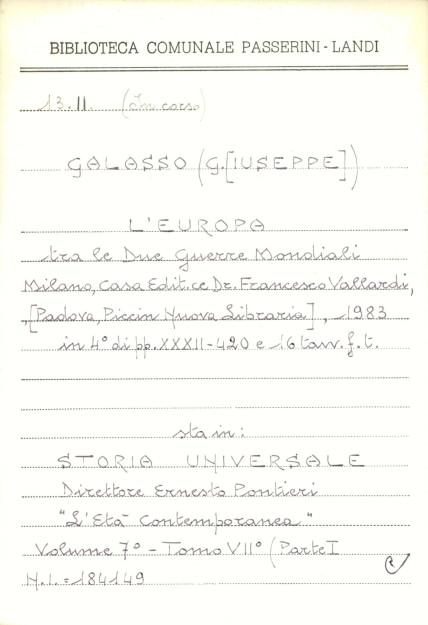 BIBLIOTECA COMUNALE PASSERINI-LANDI
13.II. (In corso)
GALASSO (G.[IUSEPPE])
L'EUROPA
tra le Due Guerre Mondiali
Milano, Casa Edit.ce Dr. Francesco Vallardi,
,[Padova, Piccin Nuova Libraria], 1983
in 4° di pp. XXXII-420 e 16 tavv. f. t.
sta in:
STORIA UNIVERSALE
Direttore Ernesto Pontieri
"L'Età Contemporanea"
Volume 7° - Tomo VII° (Parte I
N.I. = 184149